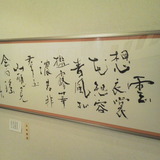 雲
想衣裳
花想容
春風拂
檻露華
濃若非
羣玉
山頭見
會向